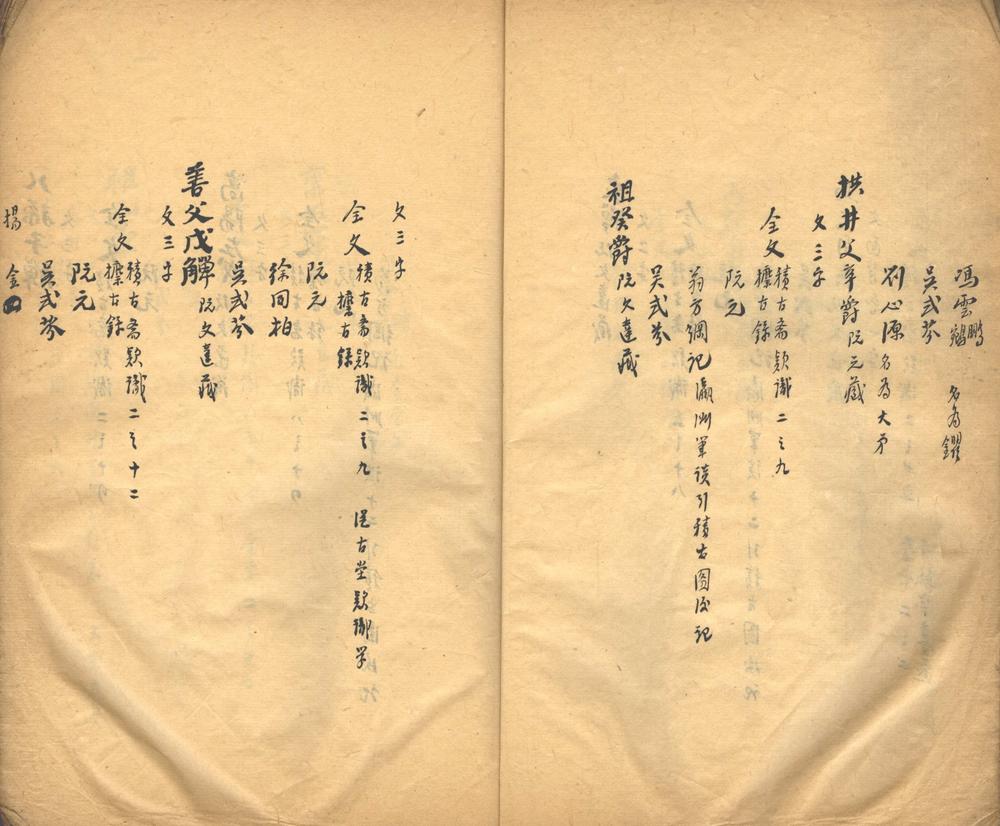 馮雲鵬鵷 名為鑺
吳式芬
劉心源 名為大矛
拱井父辛爵 阮元藏
文三字
金文 積古齋款識二之九
攈古錄
阮元
翁方綱記 瀛洲筆談引積古圖後記
吳式芬
祖癸爵 阮文達藏
文三字
金文 積古齋款識二之九 從古堂款識學
攈古錄
阮元
徐同柏
吳式芬
善父戊觶 阮文達藏
文三字
金文 積古齋款識二之十二
攈古錄
阮元
吳式芬